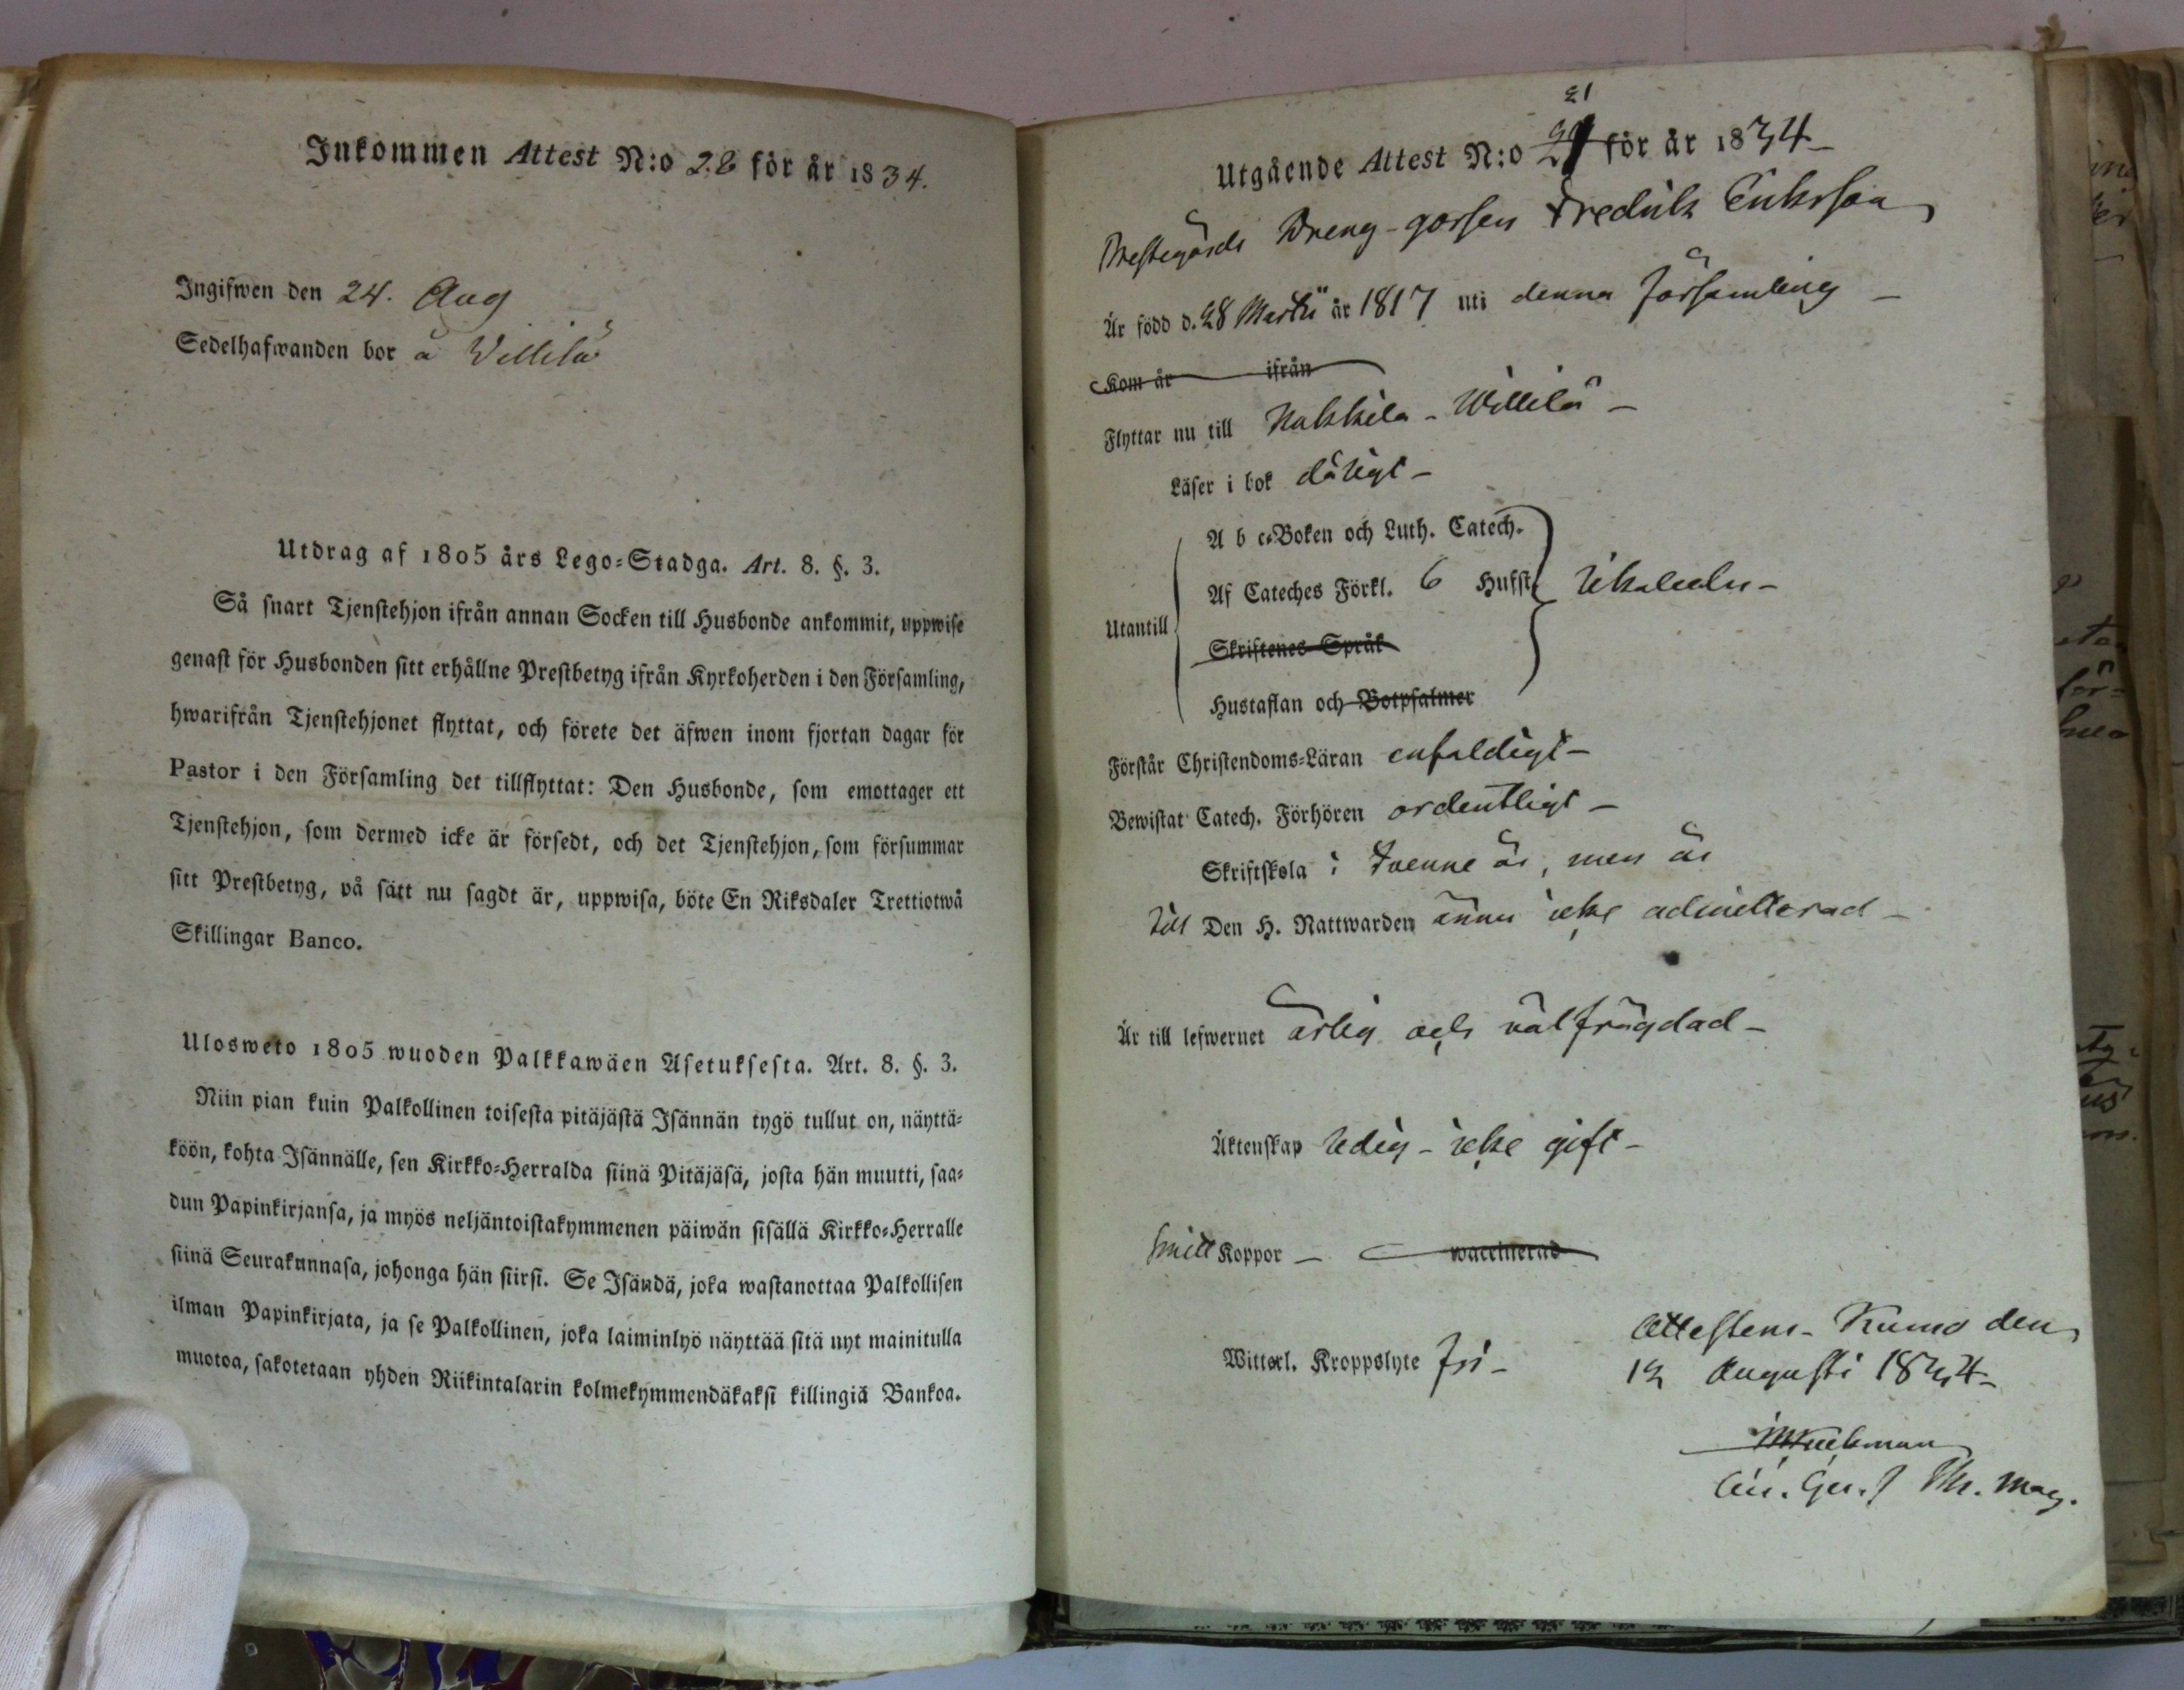 Inkommen Attest N:o 28 för år 1834.
Ingifwen den 24. Aug
Sedelhafwanden bor å Villilä
Utdrag af 1805 års Lego-Stadga. Art. 8. §. 3.
Så snart Tjenstehjon ifrån annan Socken till Husbonde ankommit, uppwise
genast för Husbonden sitt erhållne Prestbetyg ifrån Kyrkoherden i den Församling,
hwarifrån Tjenstehjonet flyttat, och förete det äfwen inom fjortan dagar för
Pastor i den Församling det tillflyttat: Den Husbonde, som emottager ett
Tjenstehjon, som dermed icke är försedt, och det Tjenstehjon, som försummar
sitt Prestbetyg, på sätt nu sagdt är, uppwisa, böte En Riksdaler Trettiotwå
Skillingar Banco.
Ulosweto 1805 wuoden Palkkawäen Asetuksesta. Art. 8. §. 3.
Niin pian kuin Palkollinen toisesta pitäjästä Isännän tygö tullut on, näyttä-
köön, kohta Isännälle, sen Kirkko-Herralda siinä Pitäjäsä, josta hän muutti, saa-
dun Papinkirjansa, ja myös neljäntoistakymmenen päiwän sisällä Kirkko-Herralle
siinä Seurakunnasa, johonga hän siirsi. Se Isändä, joka wastanottaa Palkollisen
ilman Papinkirjata, ja se Palkollinen, joka laiminlyö näyttää sitä nyt mainitulla
muotoa, sakotetaan yhden Riikintalarin kolmekymmendäkaksi killingiä Bankoa.
21
Utgående Attest N:o för år 1834
Prestegårds Dreng-gossen Fredrik Eriksson
Är född d. 28 Martii år 1817 uti denna församling
Kom år ifrån
Flyttar nu till Nakkila - Willilä
Läser i bok dåligt
A b c-Boken och Luth. Catech.
Af Cateches Förkl. 6 Hufst. likaledes
Utantill
Skriftenes Språk
Hustaflan och Botpsalmer
Förstår Christendoms-Läran enfaldigt
Bewistat Catech. Förhören ordentligt
Skriftskola i tvenne år, men är
till Den H. Nattwarden ännu icke admitterad
Är till lefwernet ärlig och välfrägdad
Äktenskap ledig - icke gift
haft Koppor waccinerad
Witterl. Kroppslyte fri
Attesteras - Kumo den
12 Augusti 1834